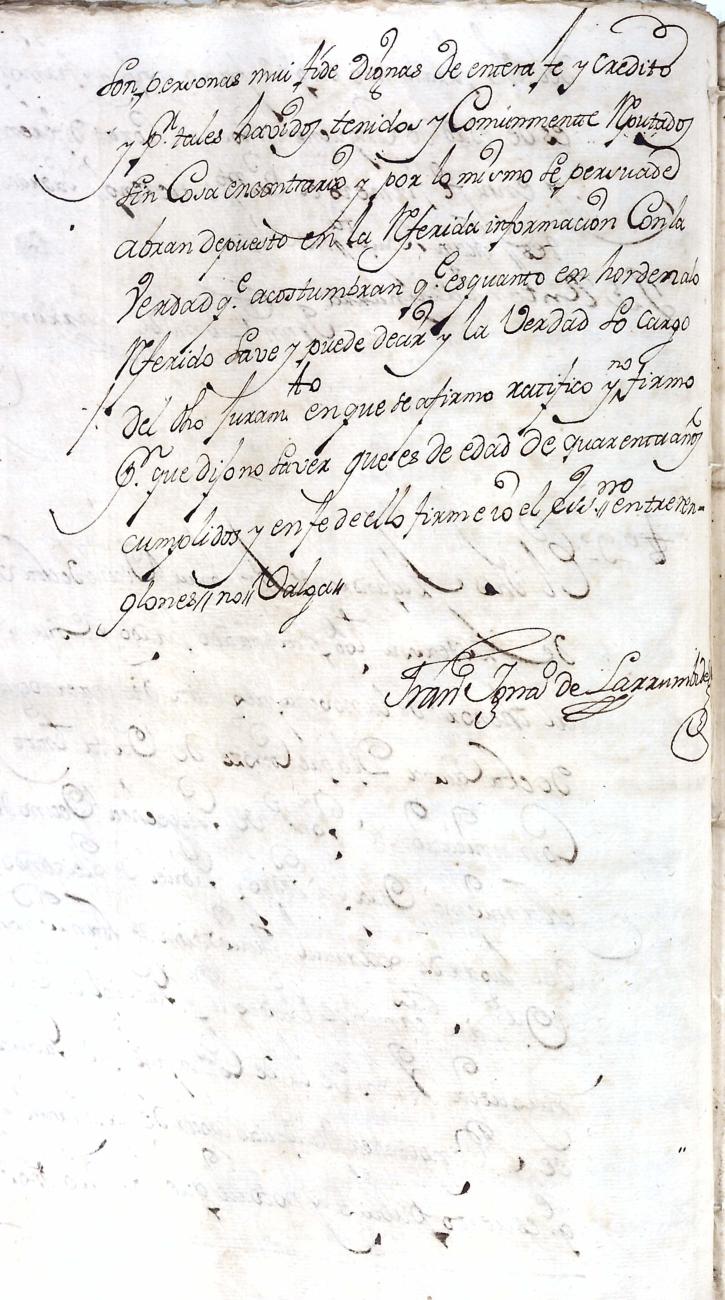 Son personas mui fide dignas de entera fe y credito
y p.r tales havidos tenidos y Comunmente Reputados
sin Cosa encontrario y por lo mismo se persuade
abran depuesto en la Referida informacion Con la
Verdad q.e acostumbran q.e es quanto en horden alo
Referido save y puede decir y la Verdad so cargo
del dho Juram.to en que se afirmo ratifico y no firmo
P.r que dijo no saver que es de edad de quarenta años
cumplidos y en fe de ello firme io el entrerren=
glones // no // Valga //
Fran.co Ygna.o de Larrumbide